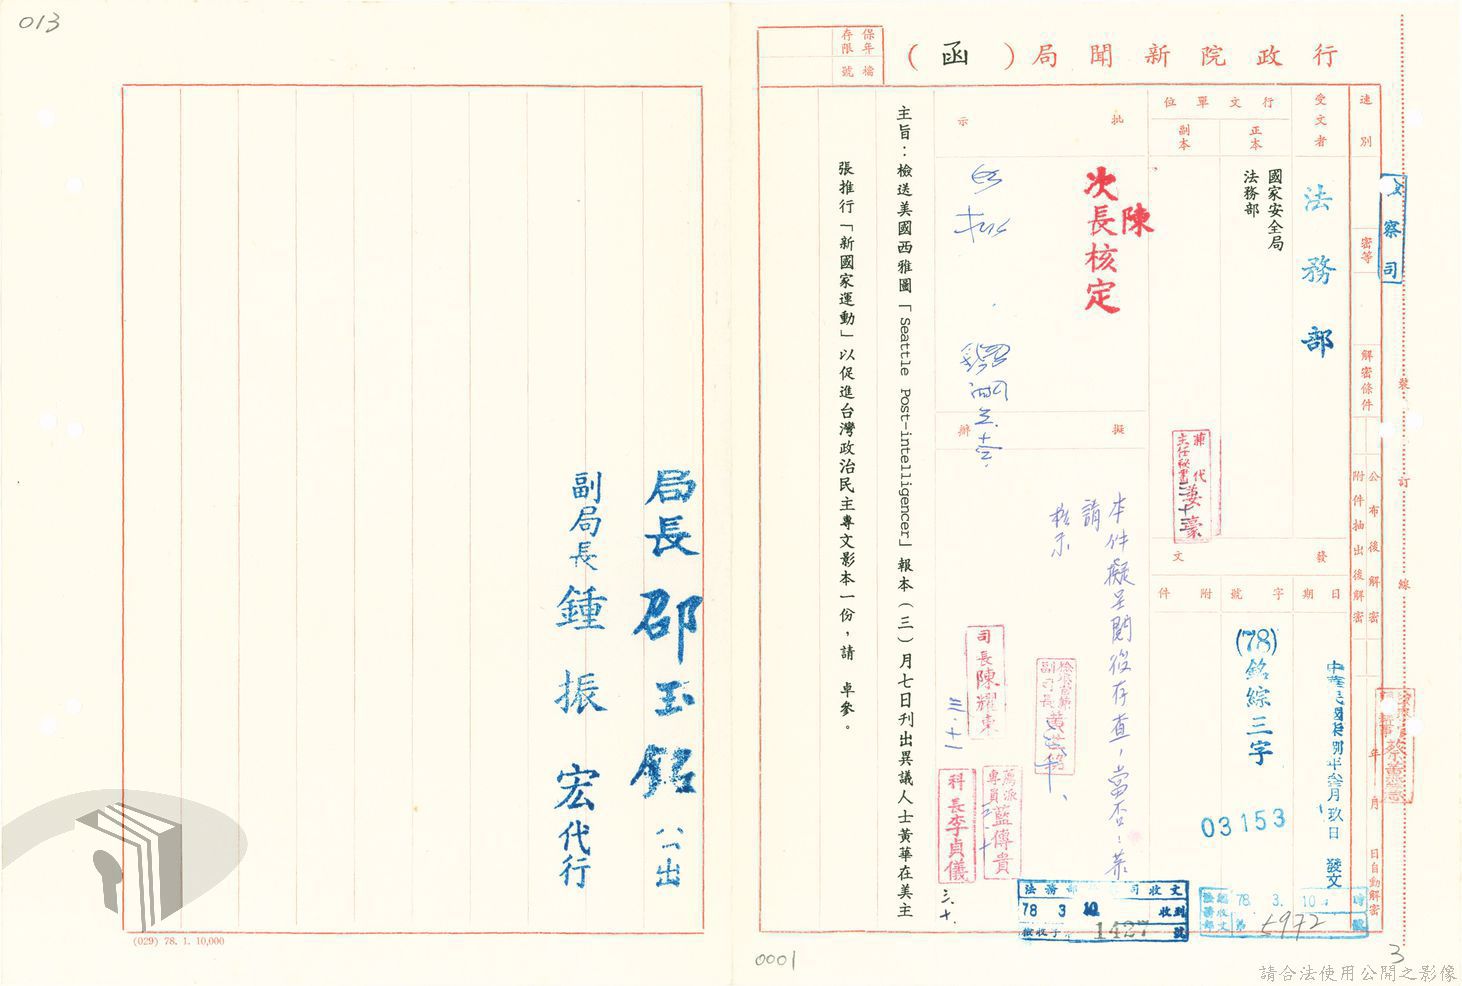 013
行政院新聞局(函)
保存年限
檔號
速別
密等
解密條件
公布後解密
附件抽出後解密
年 月 日自動解密
裝
訂
線
受文者
法務部
行文單位
正本
副本
國家安全局
法務部
發文
日期
字號
附件
中華民國柒捌年叁月玖日 發文
(78)銘綜三字
03153
批示
陳
次長核定
擬辦
本件擬呈閱後存查,當否,恭
請
核示
司長陳耀東
三.十一
薦派專員藍傳貴
科長李貞儀
三.十.
主旨:檢送美國西雅圖「Seattle Post-intelligencer」報本(三)月七日刊出異議人士黃華在美主
張推行「新國家運動」以促進台灣政治民主專文影本一份,請 卓參。
法務部
司收文
78 3 10
收到
1427
號
78. 3. 10
5972
3
0001
局長 邵玉銘 公出
副局長 鍾振宏 代行
(029) 78. 1. 10,000
請合法使用公開之影像